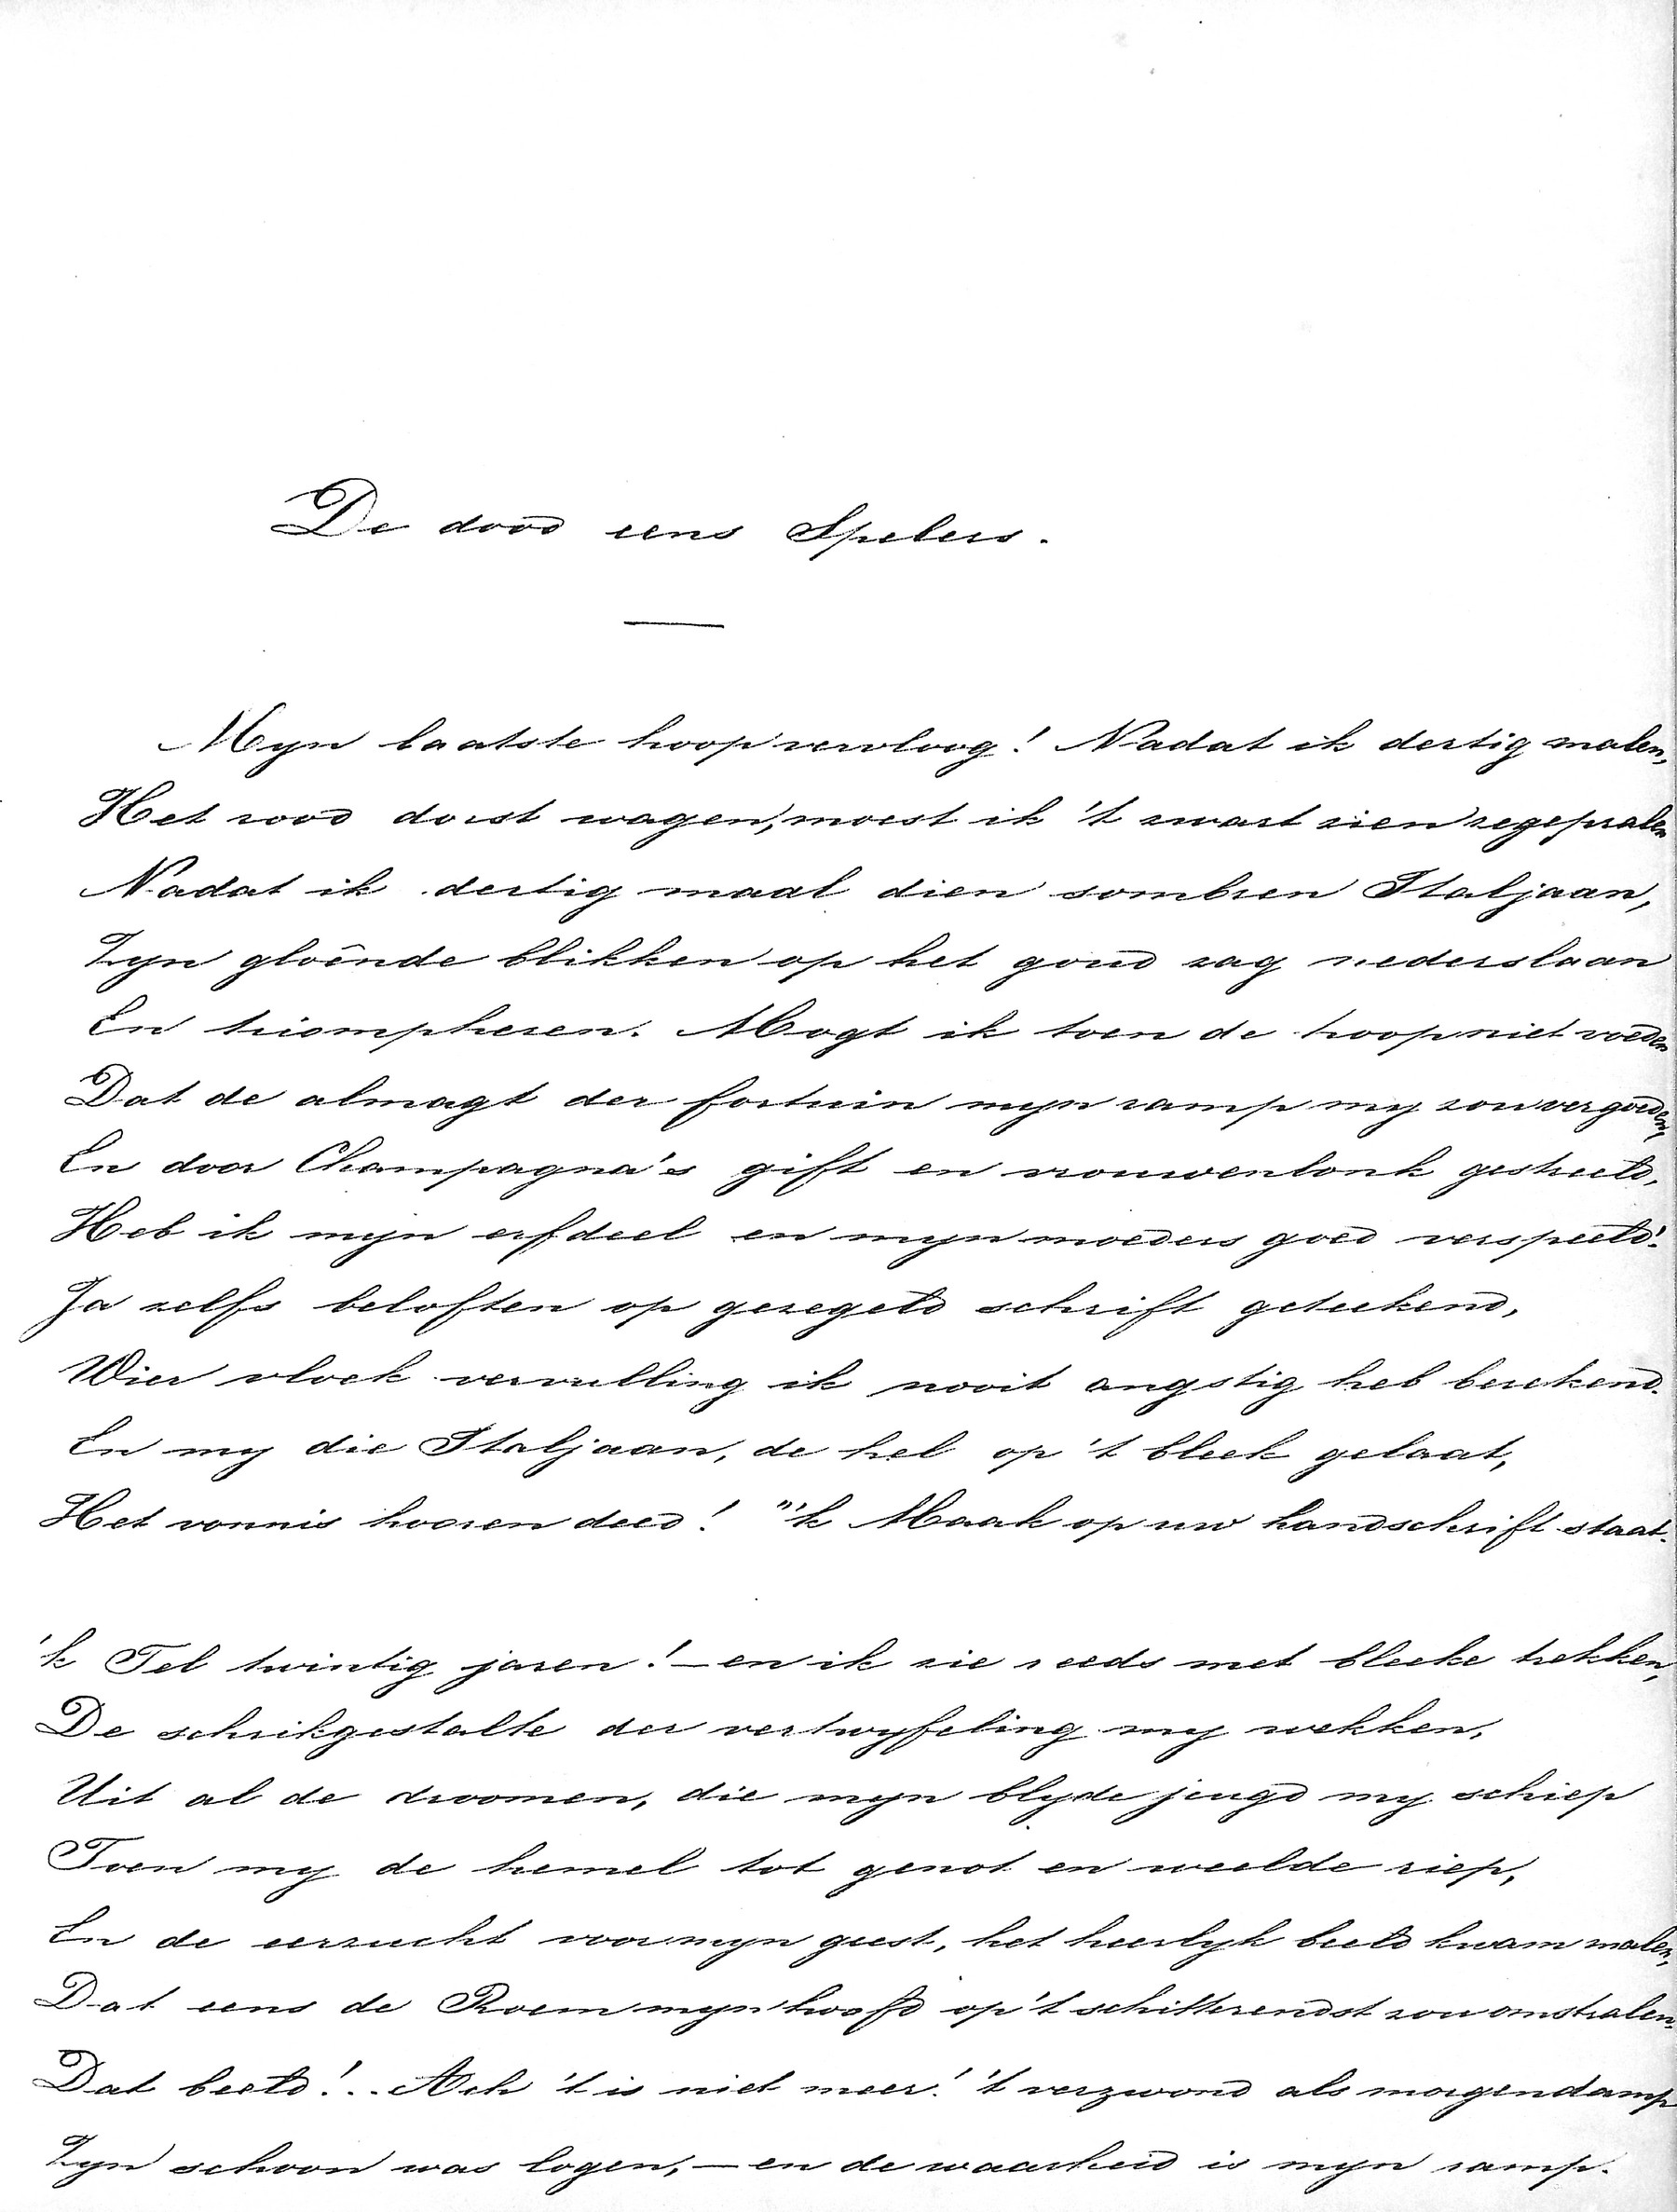 De dood eens Spelers.
Myn laatste hoop vervloog! Nadat ik dertig malen,
Het rood dorst wagen, moest ik 't zwart zien zegepralen
Nadat ik dertig maal dien sombren Italjaan,
Zyn gloênde blikken op het goud zag nederslaan
En triompheren. Mogt ik toen de hoop niet voeden
Dat de almagt der fortuin myn ramp my zou vergoeden,
En door Champagna's gift en vrouwenlonk gestreeld,
Heb ik mijn erfdeel en myn moeders goed verspeeld!
Ja zelfs beloften op gezegeld schrift geteekend,
Wier vloek vervulling ik nooit angstig heb berekend.
En my die Italjaan, de hel op 't bleek gelaat,
Het vonnis hooren deed! "'k Maak op uw handschrift staat.
'k Tel twintig jaren! – en ik zie reeds met bleeke trekken,
De schrikgestalte der vertwyfeling my wekken,
Uit al de droomen, die myn blyde jeugd my schiep
Toen my de hemel tot genot en weelde riep,
En de eerzucht voor myn geest, het heerlyk beeld kwam malen,
Dat eens de Roem myn hoofd op 't schitterendst zou omstralen.
Dat beeld!.. Ach 't is niet meer! 't verzwond als morgendamp
Zyn schoon was logen, – en de waarheid is myn ramp.